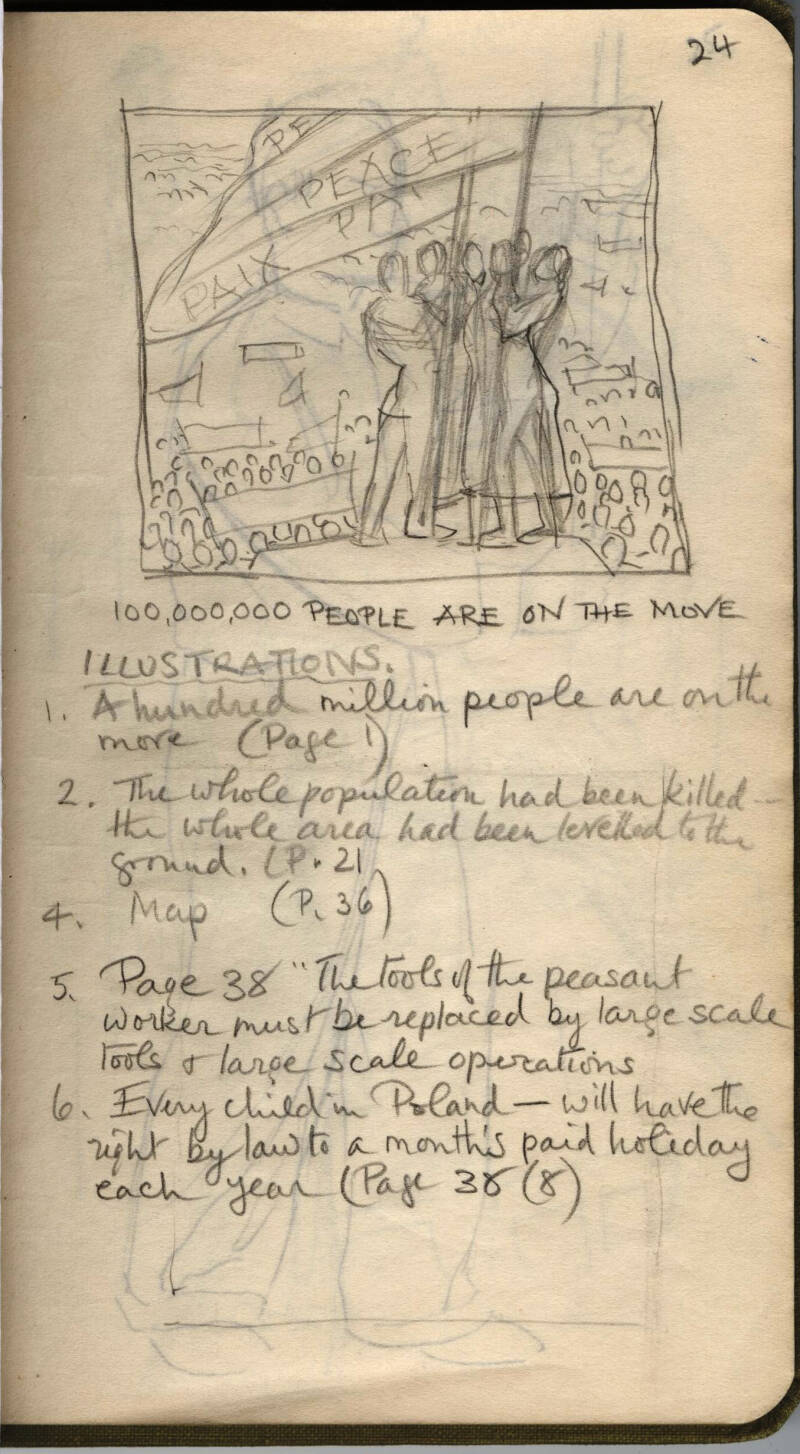 24
PE
PEACE
PAI
PAIX
100,000,000 PEOPLE ARE ON THE MOVE
ILLUSTRATIONS.
1. A hundred million people are on the
move (Page 1)
2. The whole population had been killed --
the whole area had been levelled to the
ground. (P. 21
4. Map (P. 36)
5. Page 38 "The tools of the peasant
worker must be replaced by large scale
tools & large scale operations
6. Every child in Poland — will have the
right by law to a month's paid holiday
each year (Page 38 (8)